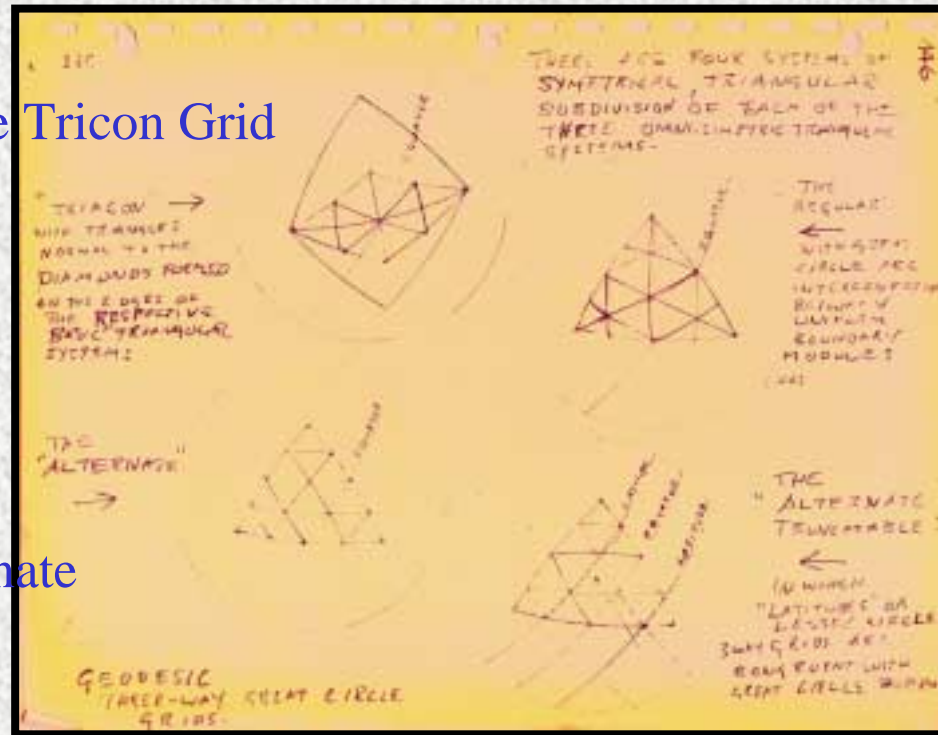 Tricon Grid
THERE ARE FOUR SYSTEMS OF
SYMETRICAL, TRIANGULAR
SUBDIVISION OF EACH OF THE
THREE OMNI-SIMETRIC TRIANGULAR
SYSTEMS-
EQUATOR
"TRIACON →
WITH TRIANGLES
NORMAL TO THE
DIAMONDS FORMED
ON THE EDGES OF
THE RESPECTIVE
BASIC TRIANGULAR
SYSTEMS
EQUATOR
THE
REGULAR
←
WITH GREAT
CIRCLE ARC
UNIFORM
BOUNDARY
MODULES
THE
"ALTERNATE"
→
EQUATOR
nate
EQUATOR
EQUATOR
THE
"ALTERNATE
TRUNCATABLE"
←
IN WHICH
"LATITUDES" OR
LESSER CIRCLE
3WAY GRIDS ARE
CONGRUENT WITH
GREAT CIRCLE
GEODESIC
THREE-WAY GREAT CIRCLE
GRIDS-